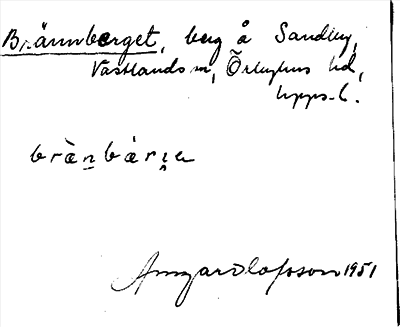 Brännberget, berg å Sandby,
Västlands sn, Örbyhus hd,
Upps. l.
bràn̲bàrɪ̯a
Amgard Olofsson 1951